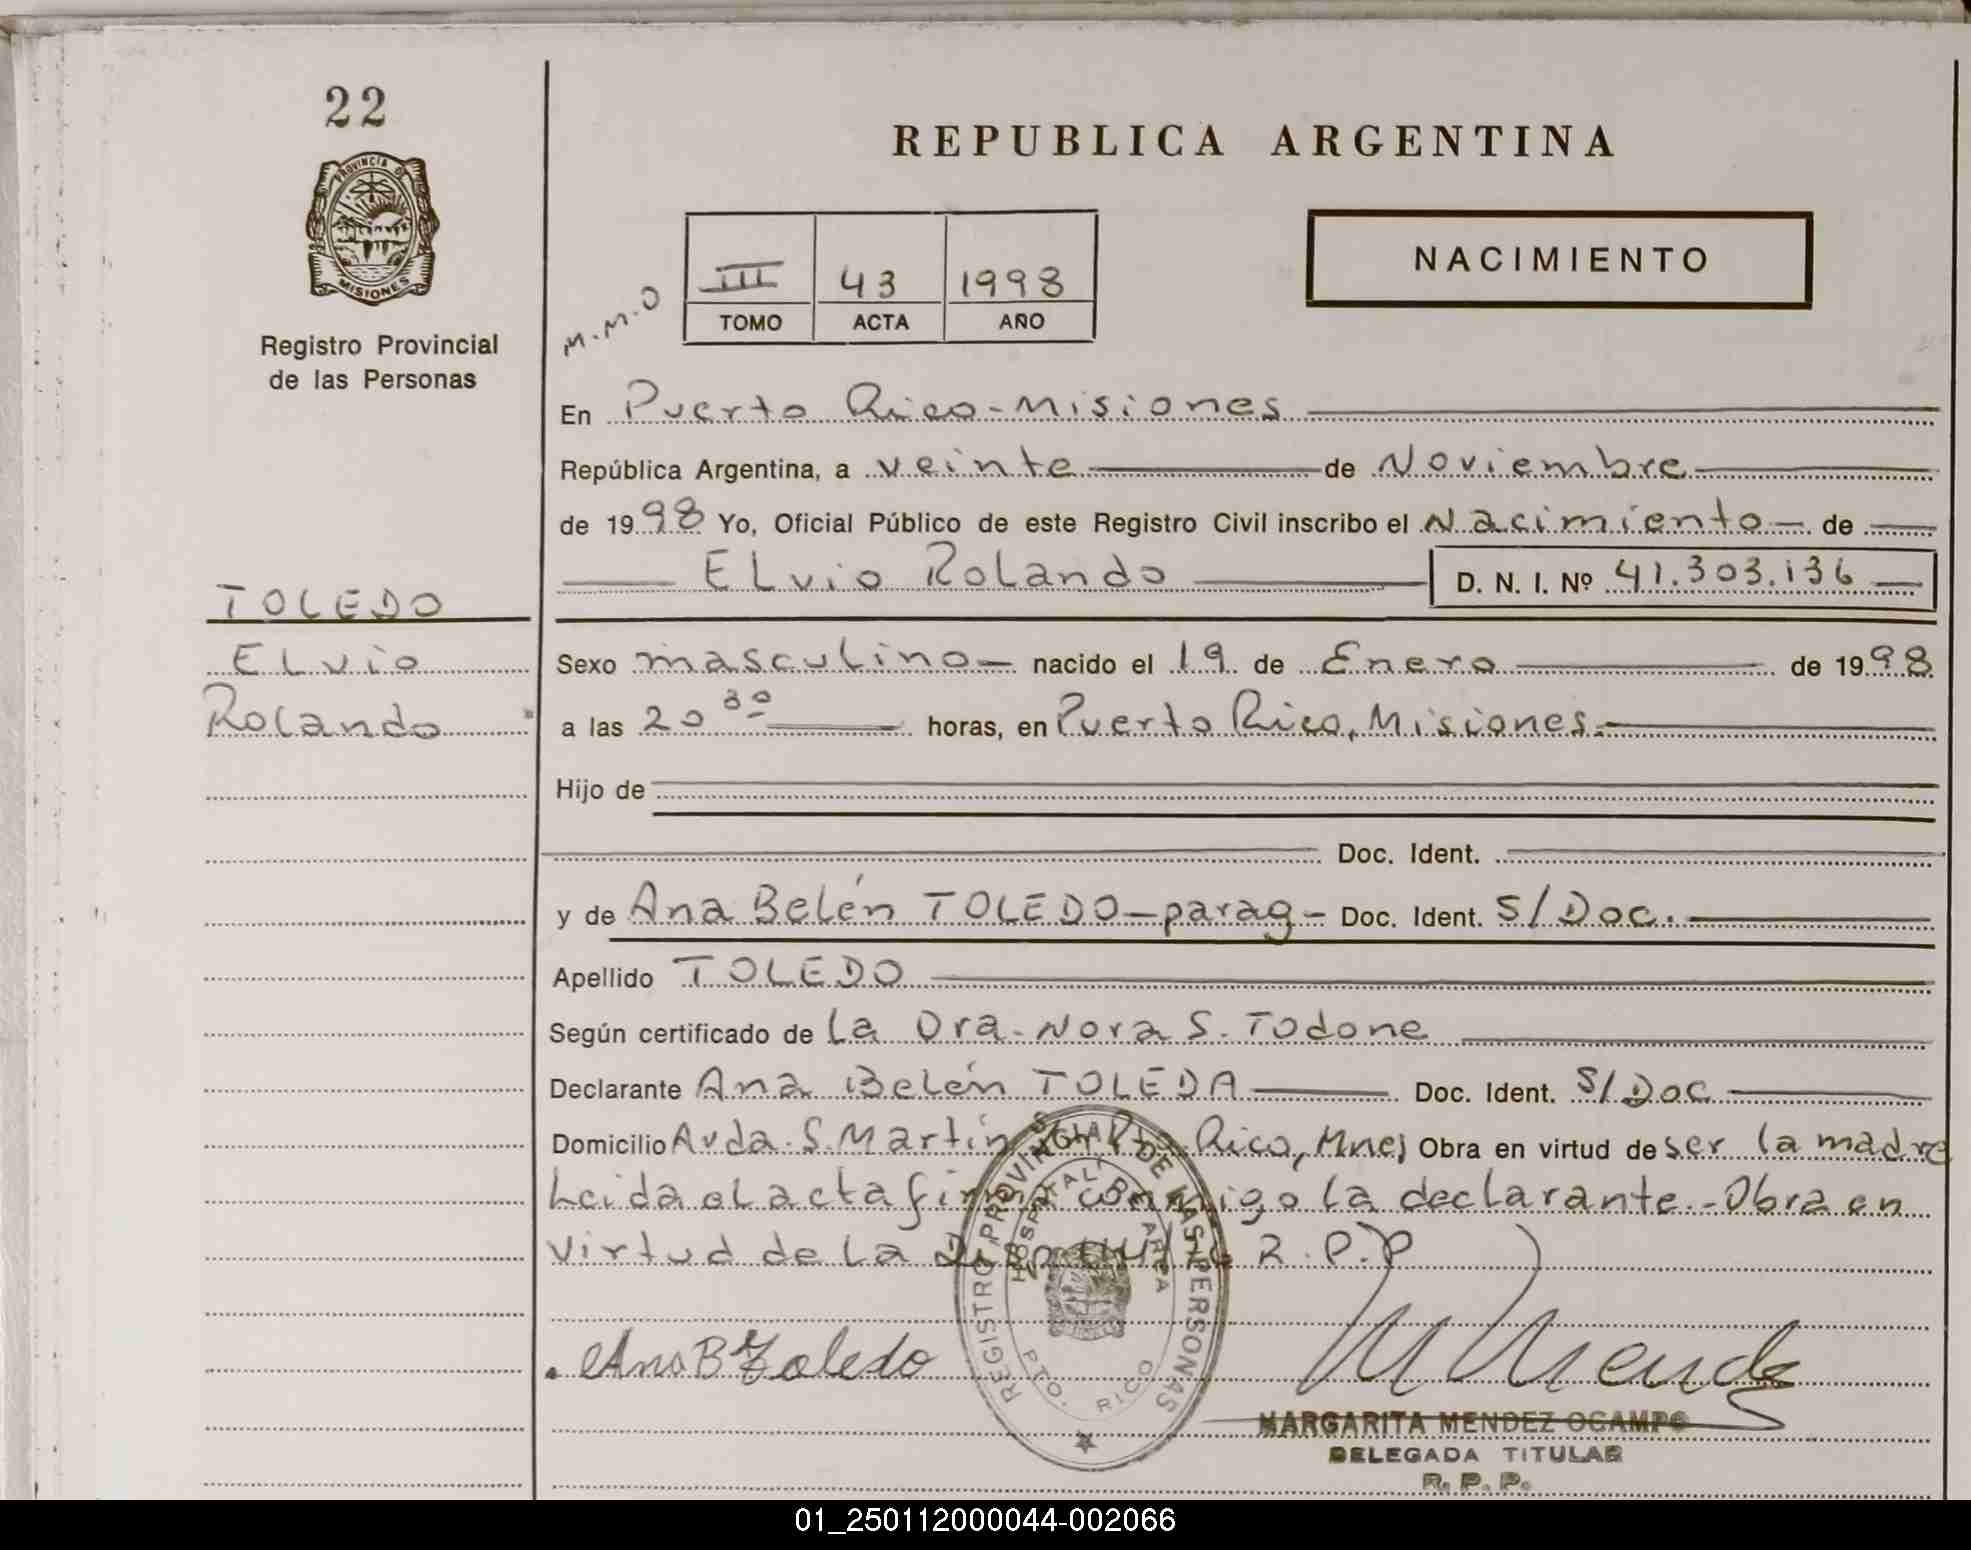 22
REPUBLICA ARGENTINA
PROVINCIA DE
MISIONES
NACIMIENTO
III 43 1998
TOMO ACTA AÑO
M.M.O
Registro Provincial
de las Personas
En Puerto Rico-Misiones
República Argentina, a veinte de Noviembre
de 1998 Yo, Oficial Público de este Registro Civil inscribo el Nacimiento de
ELvio Rolando D. N. I. Nº 41.303.136
TOLEDO
ELvio
Rolando
Sexo masculino nacido el 19 de Enero de 1998
a las 20 30 horas, en Puerto Rico, Misiones.
Hijo de
Doc. Ident.
y de Ana Belén TOLEDO-parag- Doc. Ident. S/Doc.
Apellido TOLEDO
Según certificado de La Dra. Nora S. Todone
Declarante Ana Belén TOLEDA Doc. Ident. S/Doc
Domicilio Avda. S. Martín Pto. Rico, Mnes Obra en virtud de ser la madre
Leida el acta firma conmigo la declarante.-Obra en
virtud de la R.P.P
REGISTRO PROVINCIAL DE LAS PERSONAS
HOSPITAL DE AREA
PTO. RICO
Ana B Toledo
M Mende
MARGARITA MENDEZ OCAMPO
DELEGADA TITULAR
R. P. P.
01_250112000044-002066